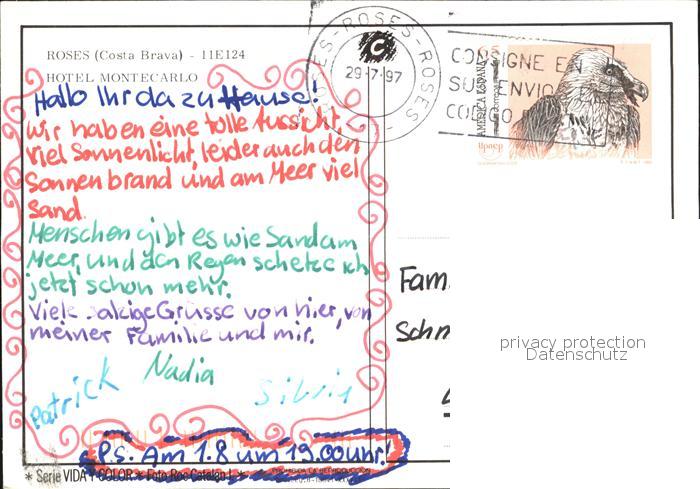 ROSES (Costa Brava) - 11E124
HOTEL MONTECARLO
Hallo Ihr da zu Hause!
Wir haben eine tolle Aussicht,
viel Sonnenlicht, leider auch den
Sonnenbrand und am Meer viel
Sand.
Menschen gibt es wie Sand am
Meer, und den Regen schetze ich
jetzt schon mehr.
Viele salzige Grüsse von hier, von
meiner Familie und mir.
Patrick
Nadia
Silvia
Ps. Am 1.8 um 19.00 uhr!
* Serie VIDA Y COLOR * Foto Roc Catalan I. *
ROSES - ROSES - ROSES -
C
29-7-97
CONSIGNE EN
SU ENVIO
CODIGO
65
AMERICA ESPAÑA
Upaep
Fam.
Schn
privacy protection
Datenschutz